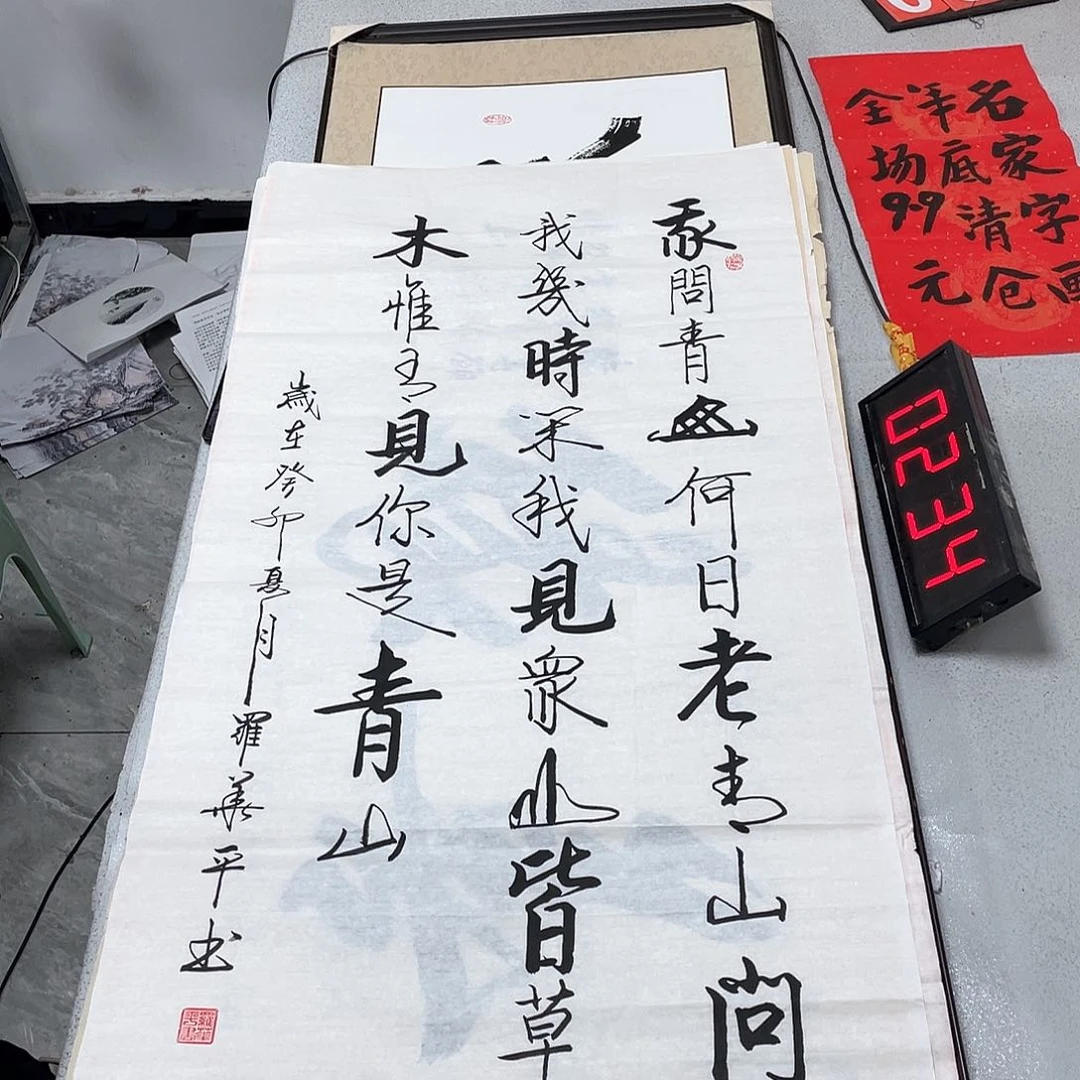 我問青山何日老青山問
我幾時閑我見眾山皆草
木惟有見你是青山
歲在癸卯夏月羅華平书
名家字画
年底清仓
全场99元
0234